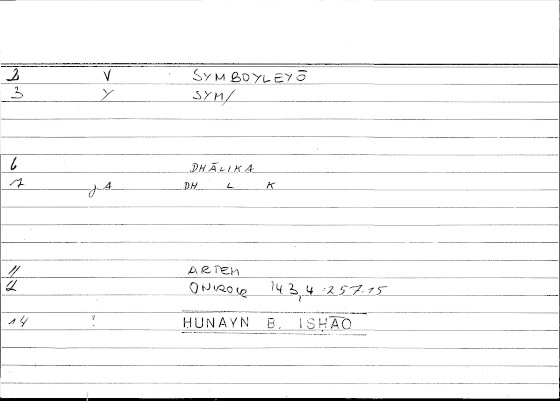 2 V SYMBOYLEYŌ
3 Y SYM/
6 DHĀLIKA
7 jA DH L K
11 ARTEM
12 ONIROCR 143,4:257.15
14 ! HUNAYN B. ISḤĀQ